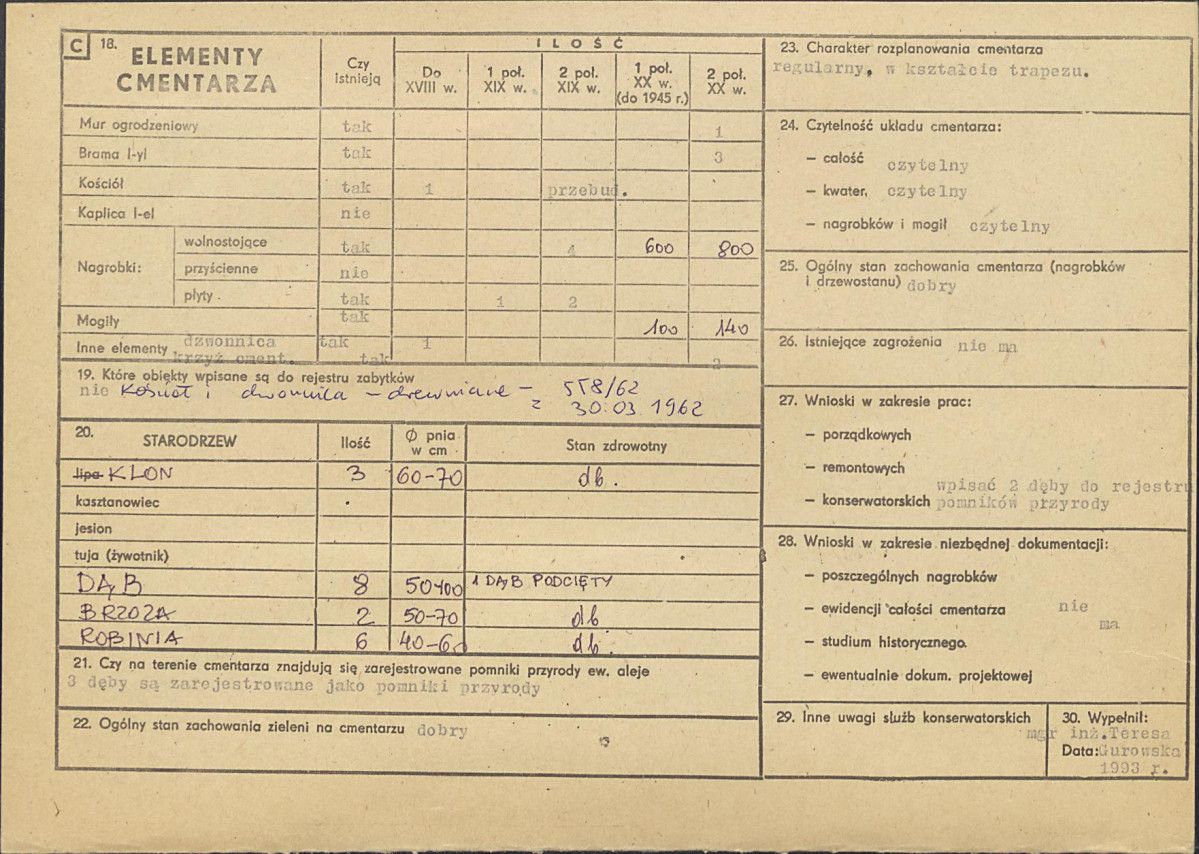 C 18. ELEMENTY CMENTARZA
Czy istnieją
ILOŚĆ
Do XVIII w.
1 poł. XIX w.
2 poł. XIX w.
1 poł. XX w. (do 1945 r.)
2 poł. XX w.
Mur ogrodzeniowy tak 1
Brama l-yl tak 3
Kościół tak 1 przebud.
Kaplica l-el nie
Nagrobki:
wolnostojące tak 4 600 800
przyścienne nie
płyty tak 1 2
Mogiły tak 100 140
Inne elementy dzwonnica tak 1
krzyż cment. tak 2
19. Które obiekty wpisane są do rejestru zabytków
nie Kościół i dzwonnica – drewniane – 558/62
z 30.03.1962
20. STARODRZEW Ilość Ø pnia w cm Stan zdrowotny
lipa KLON 3 60-70 db.
kasztanowiec
jesion
tuja (żywotnik)
DĄB 8 50-100 1 DĄB PODCIĘTY
BRZOZA 2 50-70 db
ROBINIA 6 40-60 db.
21. Czy na terenie cmentarza znajdują się zarejestrowane pomniki przyrody ew. aleje
3 dęby są zarejestrowane jako pomniki przyrody
22. Ogólny stan zachowania zieleni na cmentarzu dobry
23. Charakter rozplanowania cmentarza
regularny, w kształcie trapezu.
24. Czytelność układu cmentarza:
– całość czytelny
– kwater, czytelny
– nagrobków i mogił czytelny
25. Ogólny stan zachowania cmentarza (nagrobków
i drzewostanu) dobry
26. Istniejące zagrożenia nie ma
27. Wnioski w zakresie prac:
– porządkowych
– remontowych
wpisać 2 dęby do rejestru
– konserwatorskich pomników przyrody
28. Wnioski w zakresie niezbędnej dokumentacji:
– poszczególnych nagrobków
– ewidencji całości cmentarza nie
ma
– studium historycznego
– ewentualnie dokum. projektowej
29. Inne uwagi służb konserwatorskich
30. Wypełnił:
mgr inż.Teresa
Data: Gurowska
1993 r.